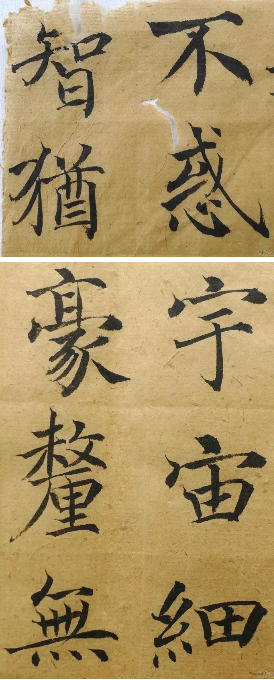 不惑
智猶
宇宙細
豪釐無